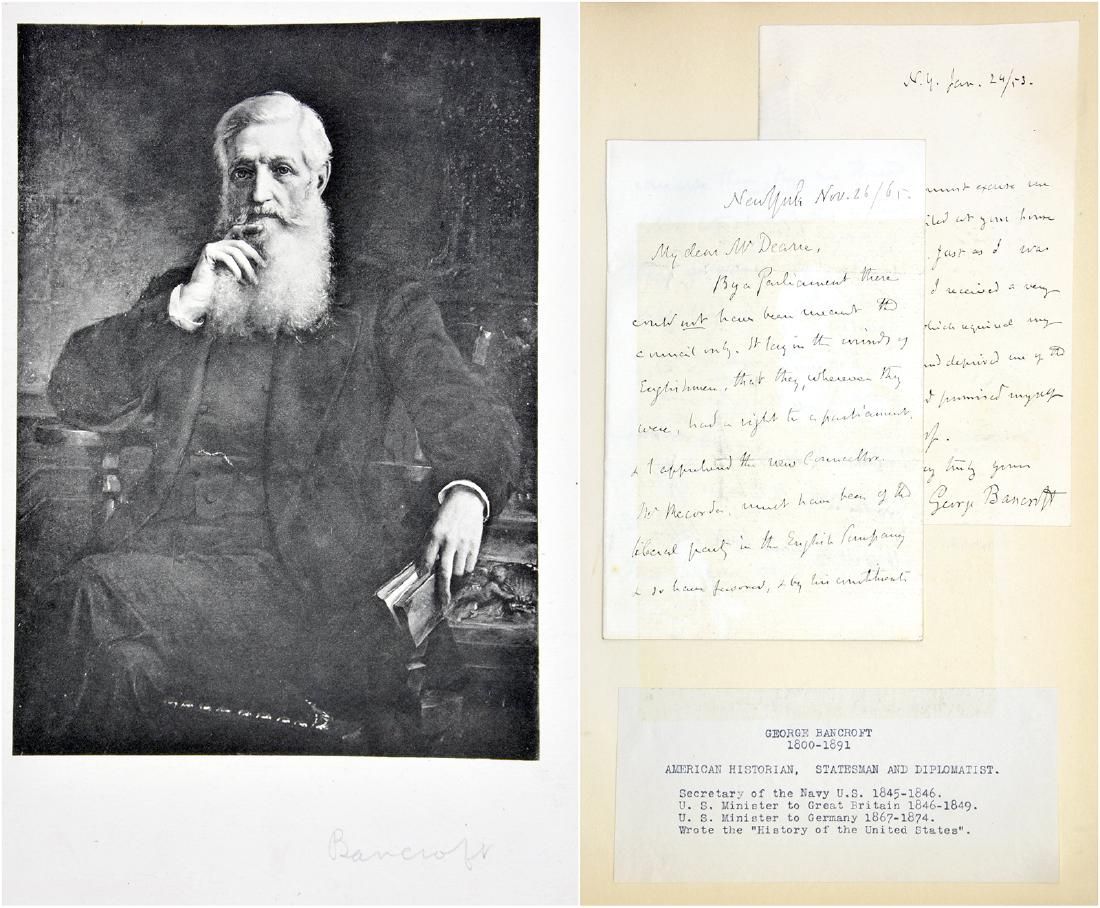 Bancroft
N.Y. Jan. 24/53.
must excuse me
at your house
Just as I was
I received a very
which required my
and deprived me of the
promised myself
truly yours
George Bancroft
New York Nov. 26/65.
My dear Mr Deane,
By a Parliament there
could not have been meant the
council only. It lay in the minds of
Englishmen, that they, wherever they
were, had a right to a parliament,
& I apprehend the new Councillor
Mr Recorder, must have been of the
liberal party in the English Company
& so have favored, & by his constituents
GEORGE BANCROFT
1800-1891
AMERICAN HISTORIAN, STATESMAN AND DIPLOMATIST.
Secretary of the Navy U.S. 1845-1846.
U. S. Minister to Great Britain 1846-1849.
U. S. Minister to Germany 1867-1874.
Wrote the "History of the United States".